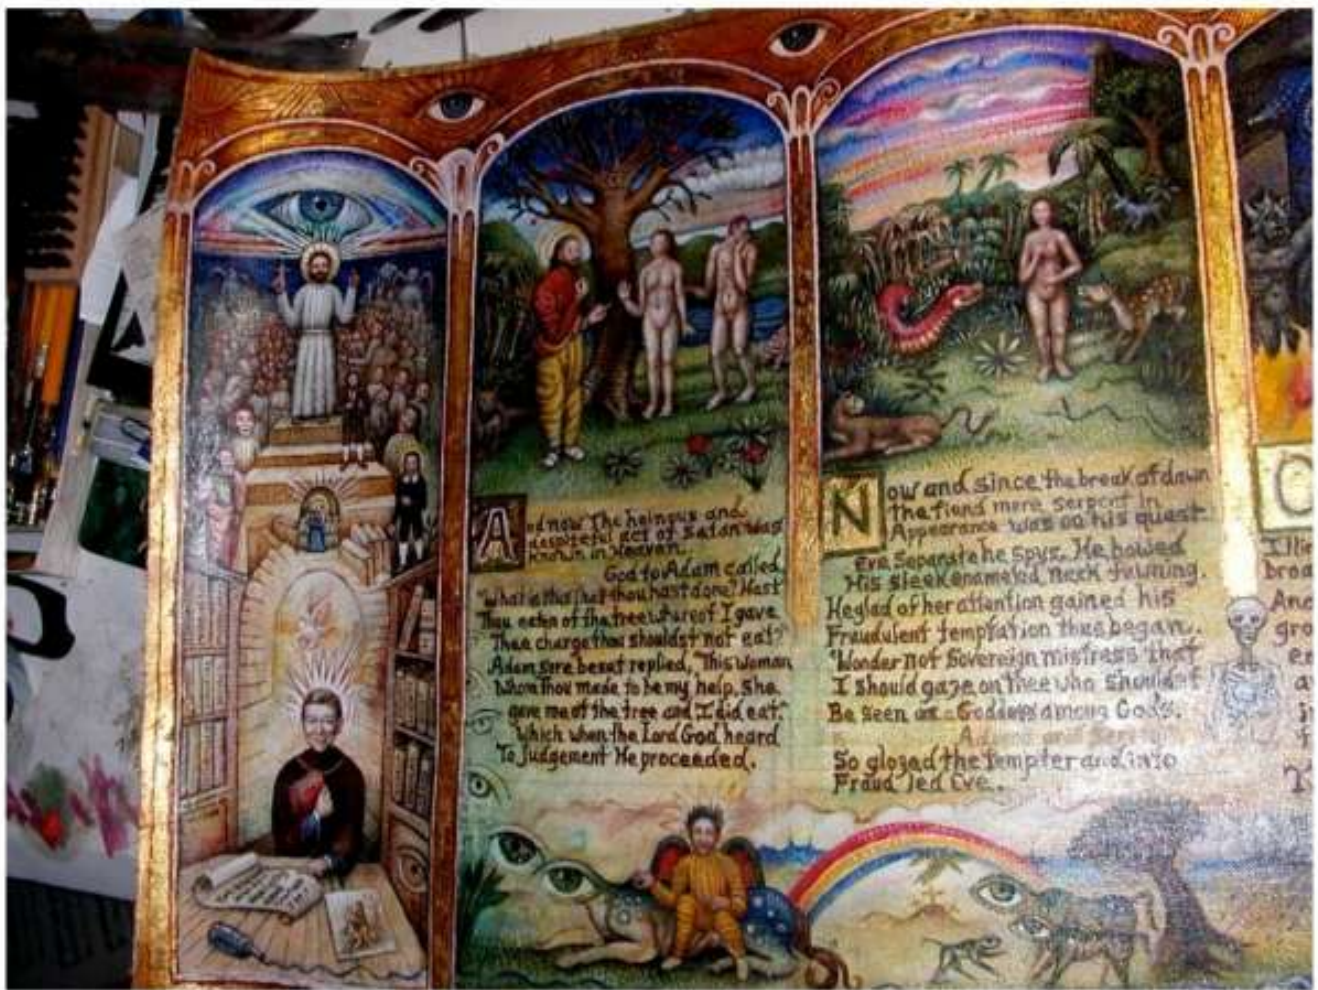 And now The heinous and
despiteful act of Satan was
known in Heaven.
God to Adam called,
"What is this that thou hast done? Hast
Thou eaten of the tree whereof I gave
Thee charge thou shouldst not eat?"
Adam sore beset replied, "This Woman
Whom thou made to be my help, She
gave me of the tree and I did eat."
Which when the Lord God heard
To Judgement He proceeded.
Now and since the break of dawn
the fiend mere serpent in
Appearance was on his quest.
Eve Separate he spys. He bowed
His sleek enameled neck fawning.
He glad of her attention gained his
Fraudulent temptation thus began.
"Wonder not Sovereign mistress that
I should gaze on thee who shouldst
Be seen a Goddess among Gods.
So glozed the Tempter and into
Fraud led Eve.
O